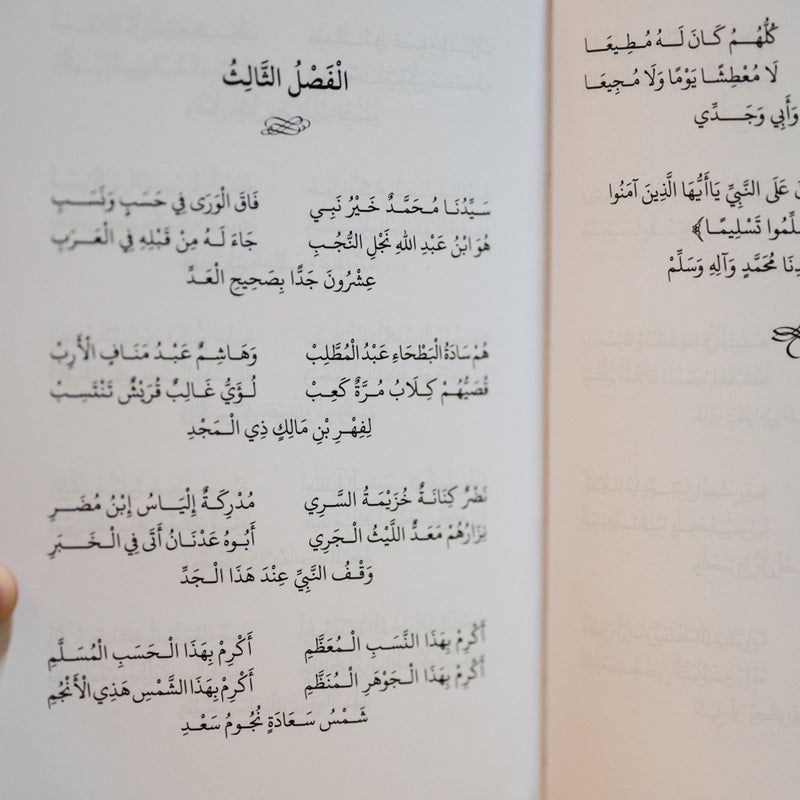 كُلُّهُمُ كَانَ لَهُ مُطِيعَا
لَا مُعْطِشًا يَوْمًا وَلَا مُجِيعَا
وَأَبِي وَجَدِّي
عَلَى النَّبِيِّ يَاأَيُّهَا الَّذِينَ آمَنُوا
تَسْلِيمًا﴾
مُحَمَّدٍ وَآلِهِ وَسَلِّمْ
الْفَصْلُ الثَّالِثُ
سَيِّدُنَا مُحَمَّدٌ خَيْرُ نَبِي فَاقَ الْوَرَى فِي حَسَبٍ وَنَسَبِ
هُوَ ابْنُ عَبْدِ اللهِ نَجْلِ النُّجُبِ جَاءَ لَهُ مِنْ قَبْلِهِ فِي الْعَرَبِ
عِشْرُونَ جَدًّا بِصَحِيحِ الْعَدِّ
هُمْ سَادَةُ الْبَطْحَاءِ عَبْدُ الْمُطَّلِبْ وَهَاشِمٌ عَبْدُ مَنَافِ الْأَرِبْ
قُصَيُّهُمْ كِلَابُ مُرَّةٌ كَعِبْ لُؤَيُّ غَالِبٌ قُرَيْشٌ تَنْتَسِبْ
لِفِهْرِ بْنِ مَالِكٍ ذِي الْمَجْدِ
نَضْرٌ كِنَانَةٌ خُزَيْمَةُ السَّرِي مُدْرِكَةٌ إِلْيَاسُ إِبْنُ مُضَرِ
نِزَارُهُمْ مَعَدٌّ اللَّيْثُ الْجَرِي أَبُوهُ عَدْنَانُ أَتَى فِي الْخَبَرِ
وَقْفُ النَّبِيِّ عِنْدَ هَذَا الْجَدِّ
أَكْرِمْ بِهَذَا النَّسَبِ الْمُعَظَّمِ أَكْرِمْ بِهَذَا الْحَسَبِ الْمُسَلَّمِ
أَكْرِمْ بِهَذَا الْجَوْهَرِ الْمُنَظَّمِ أَكْرِمْ بِهَذَا الشَّمْسِ هَذِي الْأَنْجُمِ
شَمْسُ سَعَادَةٍ نُجُومُ سَعْدِ